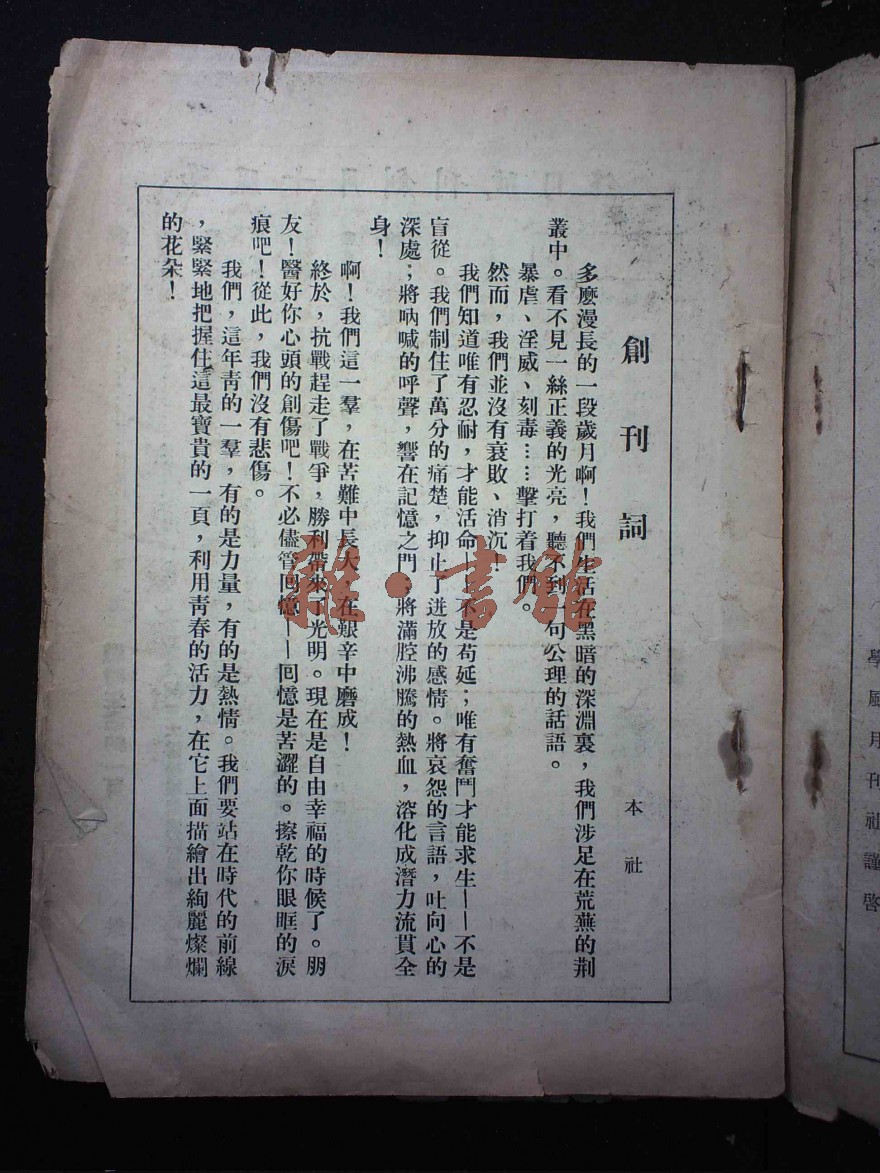 學風月刊社謹啓
創刊詞
本社
多麼漫長的一段歲月啊！我們生活在黑暗的深淵裏，我們涉足在荒蕪的荆
叢中。看不見一絲正義的光亮，聽不到一句公理的話語。
暴虐、淫威、刻毒……擊打着我們。
然而，我們並沒有衰敗、消沉！
我們知道唯有忍耐，才能活命——不是苟延；唯有奮鬥才能求生——不是
盲從。我們制住了萬分的痛楚，抑止了迸放的感情。將哀怨的言語，吐向心的
深處；將吶喊的呼聲，響在記憶之門，將滿腔沸騰的熱血，溶化成潛力流貫全
身！
啊！我們這一羣，在苦難中長大，在艱辛中磨成！
終於，抗戰趕走了戰爭，勝利帶來了光明。現在是自由幸福的時候了。朋
友！醫好你心頭的創傷吧！不必儘管回憶——回憶是苦澀的。擦乾你眼眶的淚
痕吧！從此，我們沒有悲傷。
我們，這年靑的一羣，有的是力量，有的是熱情。我們要站在時代的前線
，緊緊地把握住這最寶貴的一頁，利用靑春的活力，在它上面描繪出絢麗燦爛
的花朵！
雜·書館